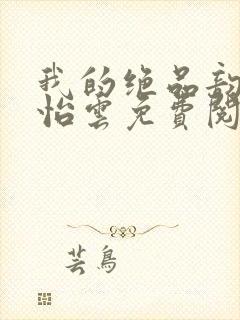 我的绝品
怡雲免費閱
芸鳥